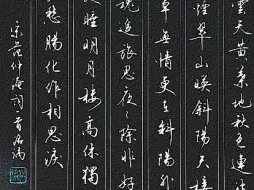 雲天黄葉地秋色連
煙翠山映斜陽天接
草無情更在斜陽外
魂追旅思夜〻除非好
睡明月樓高休獨
愁腸化作相思淚
宋范仲淹詞